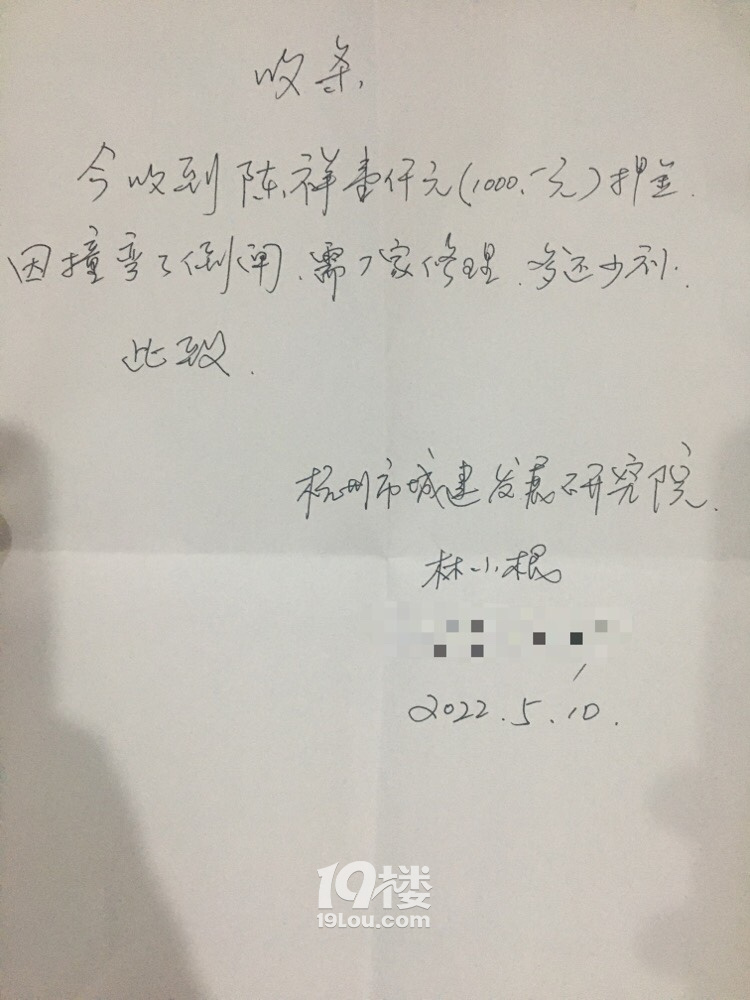 收条.
今收到陈祥壹仟元(1000.-元)押金.
因撞弯了倒闸.需厂家修理.多还少补.
此致.
杭州市城建发展研究院.
林小根
2022.5.10.
19楼
19Lou.com